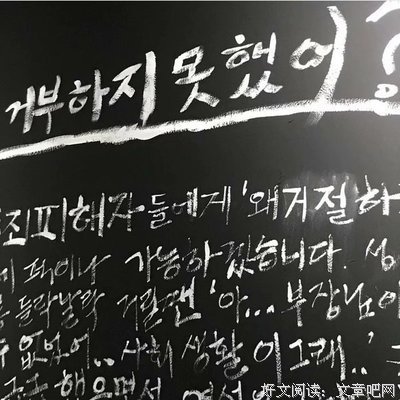 거부하지 못했어?
죄피해자들에게 '왜 거절하
가능하겠습니다. 성
들락날락 거릴땐 '아... 부장님이
없었어.. 사회 생활이 그래..'
웃으면서
好文阅读：文章吧网